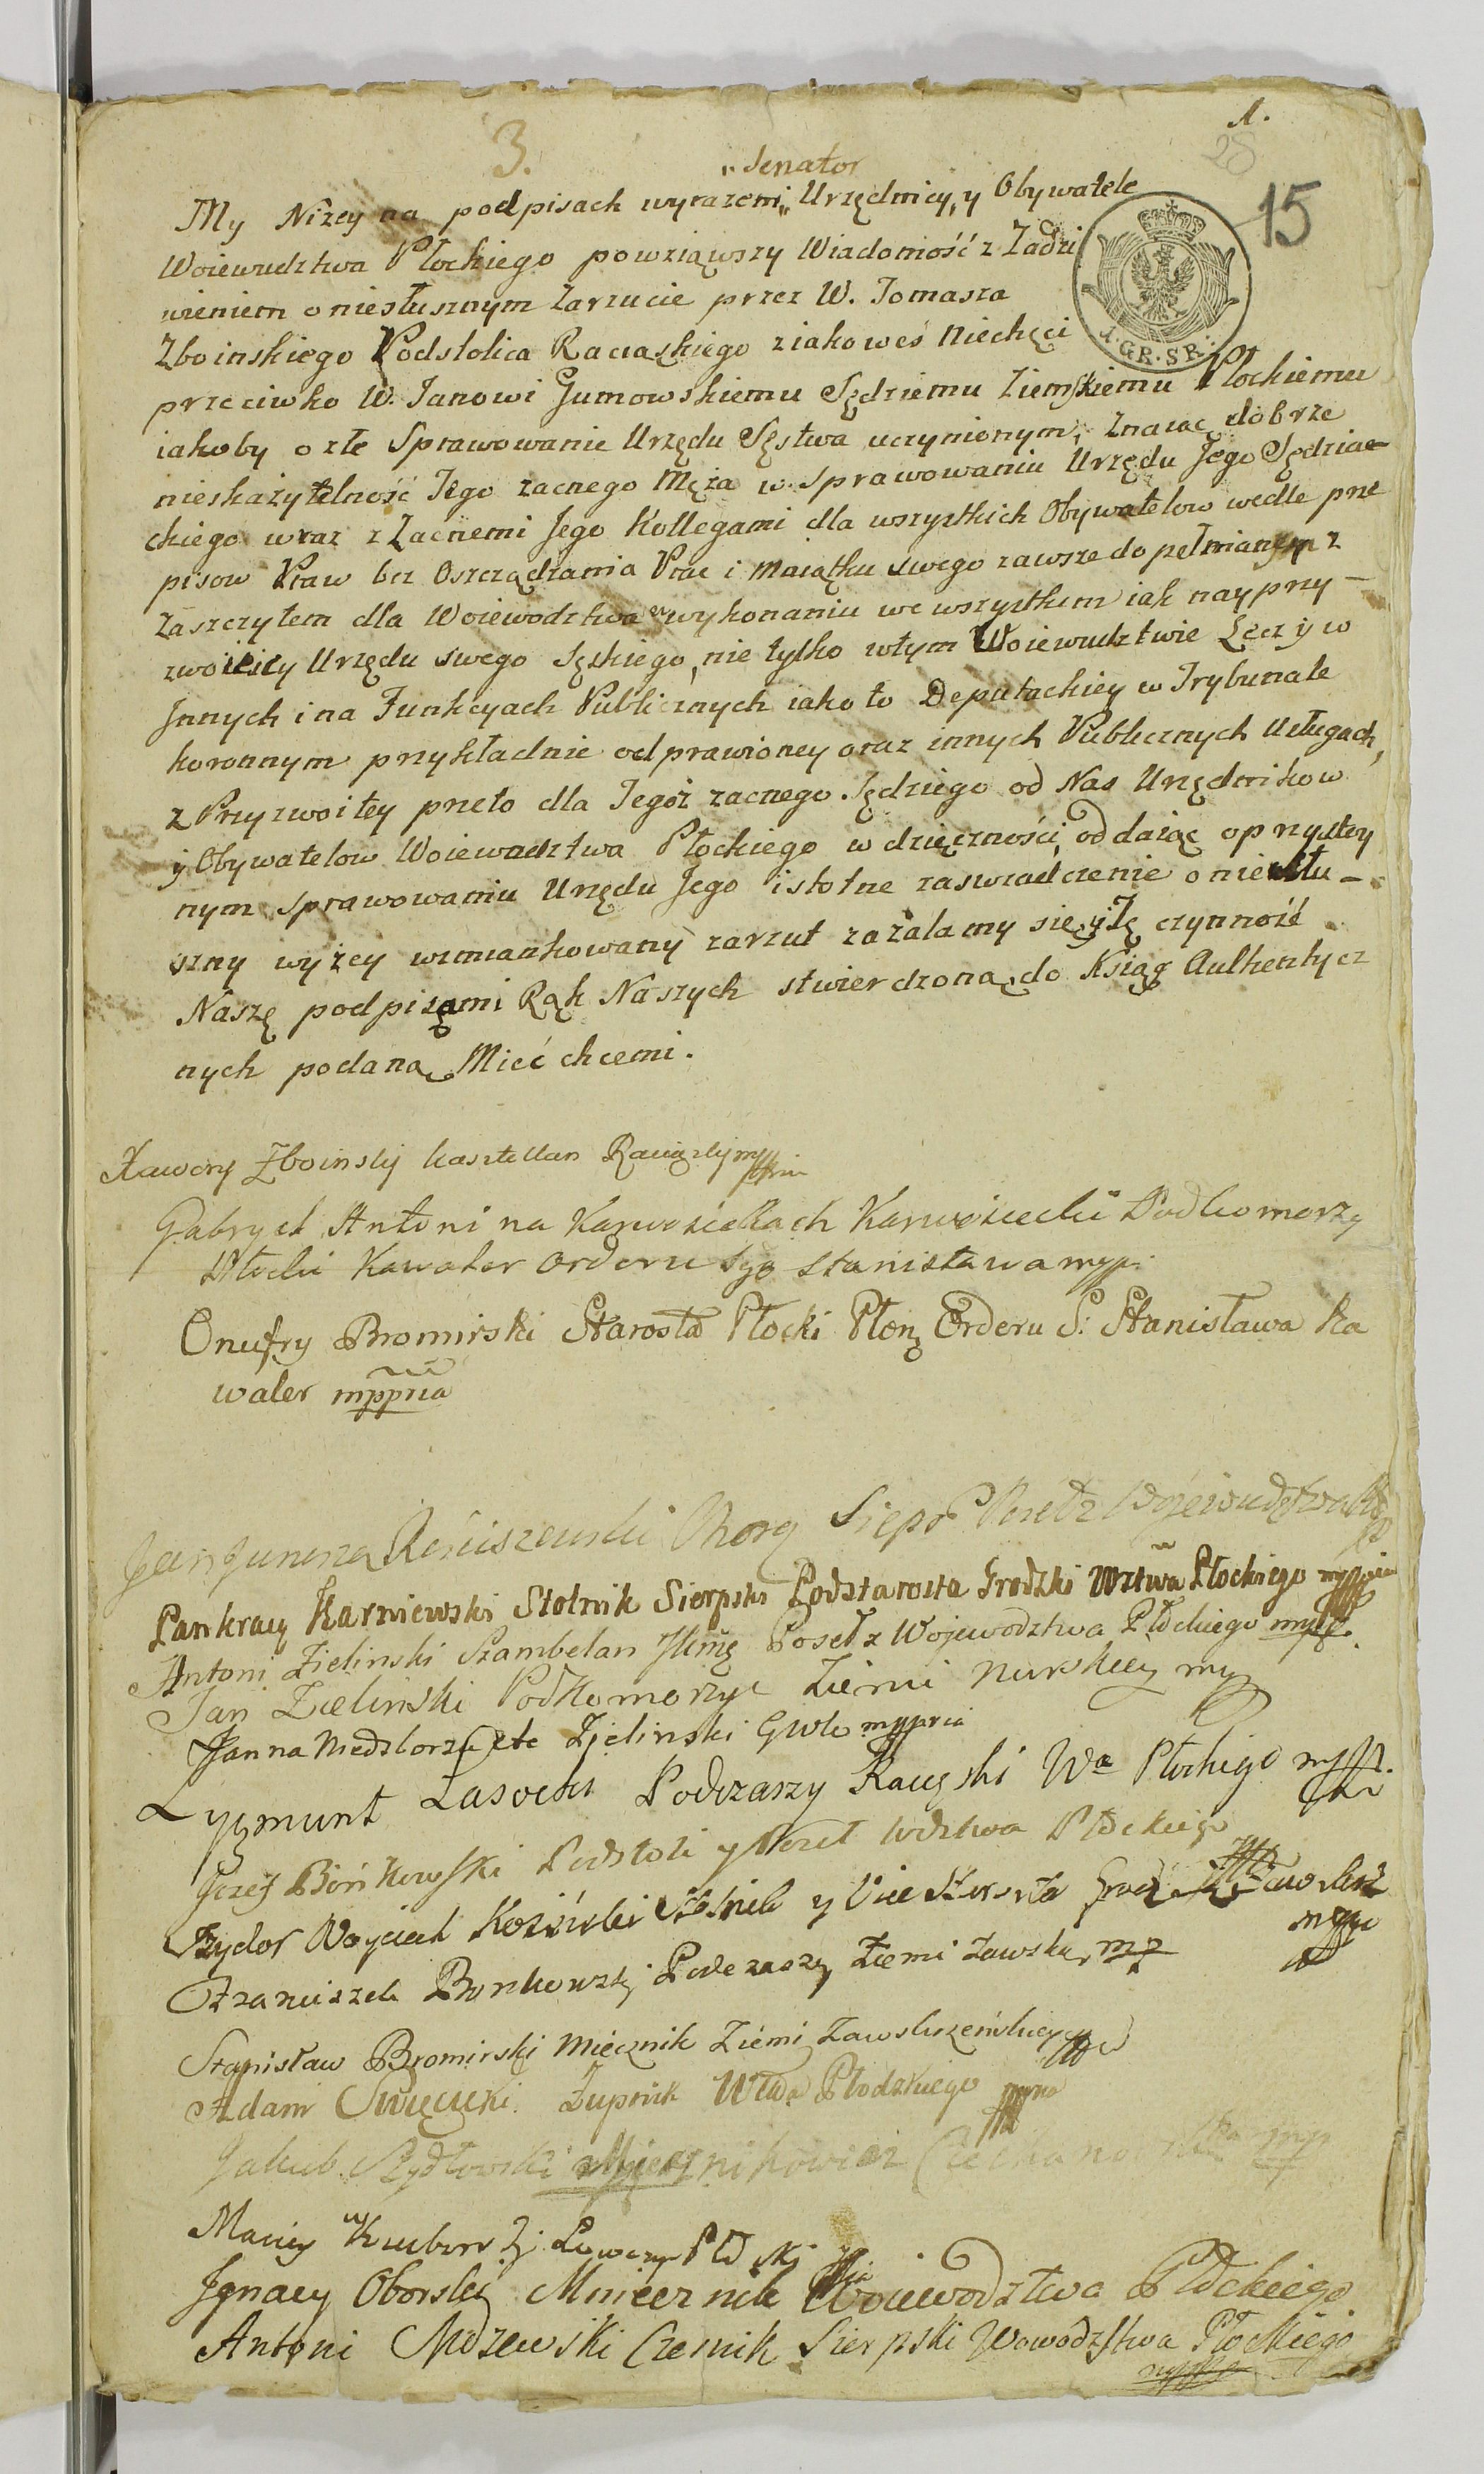 1.
3.
28
15
"Senator
My Niżey na podpisach wyrazeni" Urzędnicy, y Obywatele
Woiewudztwa Płockiego powziąwszy Wiadomość z Zadzi
wieniem o niesłusznym Zarzucie przez W. Tomasza
Zboinskiego Podstolica Raciąskiego z iakoweś Niechęci
przeciwko W. Janowi Gumowskiemu Sędziemu Ziemskiemu Płockiemu
iakoby o złe Sprawowanie Urzędu Sęstwa uczynionym, Znaiąc dobrze
nieskazytelność Jego zacnego Męża w Sprawowaniu Urzędu Jego Sędzia-
ckiego wraz z Zacnemi Jego Kollegami dla wszystkich Obywatelow wedle prze
pisow Praw bez Oszcządzania Prac i Maiątku swego zawsze dopełnianym z
Zaszczytem dla Woiewodztwa w wykonaniu we wszystkim iak nayprzy-
zwoiciey Urzędu swego Sęskiego, nie tylko wtym Woiewudztwie Lecz y w
Jnnych i na Funkcyach Publicznych iako to Deputackiey w Trybunale
koronnym przykładnie odprawioney oraz innych Publicznych Usługach,
z Przyzwoitey przeto dla Tegoż zacnego Sędziego od Nas Urzędnikow
y Obywatelow Woiewudztwa Płockiego wdzięczności, oddaiąc o przystoy
nym Sprawowaniu Urzędu Jego istotne zaswiadczenie o niesłu-
szny wyżey wzmiankowany zarzut zażalamy się, y Tę czynność
Naszę podpisami Rąk Naszych stwierdzoną do Ksiąg Authentycz
nych podaną Mieć chcemi.
Xawery Zboinsky kasztellan Raciązky mppria
Gabryel Antoni na Karwosiekach Karwosiecki Podkomorzy
Płocki Kawaler Orderu Sgo Stanisława mpp.
Onufry Bromirski Starosta Płocki Płonę Orderu S. Stanisława Ka
waler mppria
Jan Junosza Rościszewski Chorą Sierps Poseł z Wojewudztwa Pło
Pankracy Karniewski Stolnik Sierpski Podstarosta Grodzki Wztwa Płockiego mppria
Antoni Zielinski Szambelan JKmę Poseł z Wojewodztwa Płockiego mpp.
Jan Zielinski Podkomorzyc Ziemi Nurskiey mp
Zielinski mppria
Zygmunt Lasocki Podczaszy Raciąski Wa Płockigo mpp.
Jozef Bońkowski Podstoli y Poseł Wdztwa Płockiego
Jzydor Woyciech Kosiński
Franciszek Bonkowski Podczaszy Ziemi Zawskrz mp
mpp
Stanisław Bromirski Miecznik Ziemi Zawskrzeńskiey
Adam Swięcicki Zupnik Wtwa Płodzkiego mppria
Jakub Szydłowski Miecznikowicz Ciechano
Maciey Łowczy Płocki
Jgnacy Oborski Miecznik Woiewodztwa Płockiego
Antoni Mdzewski Czesnik Sierpski Wowodztwa Płockiego
mppria
A. GR. SR.